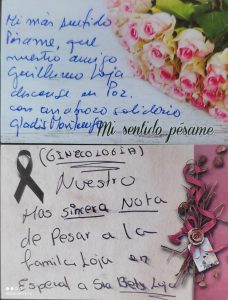 Mi más sentido
Pésame, que
nuestro amigo
Guillermo Loja
descanse en Paz.
con un abrazo solidario
Gladis
Mi sentido pésame
(GINECOLOGIA)
Nuestro
Mas sincera Nota
de Pesar a la
familia Loja en
Especial a Sra Betty Loja